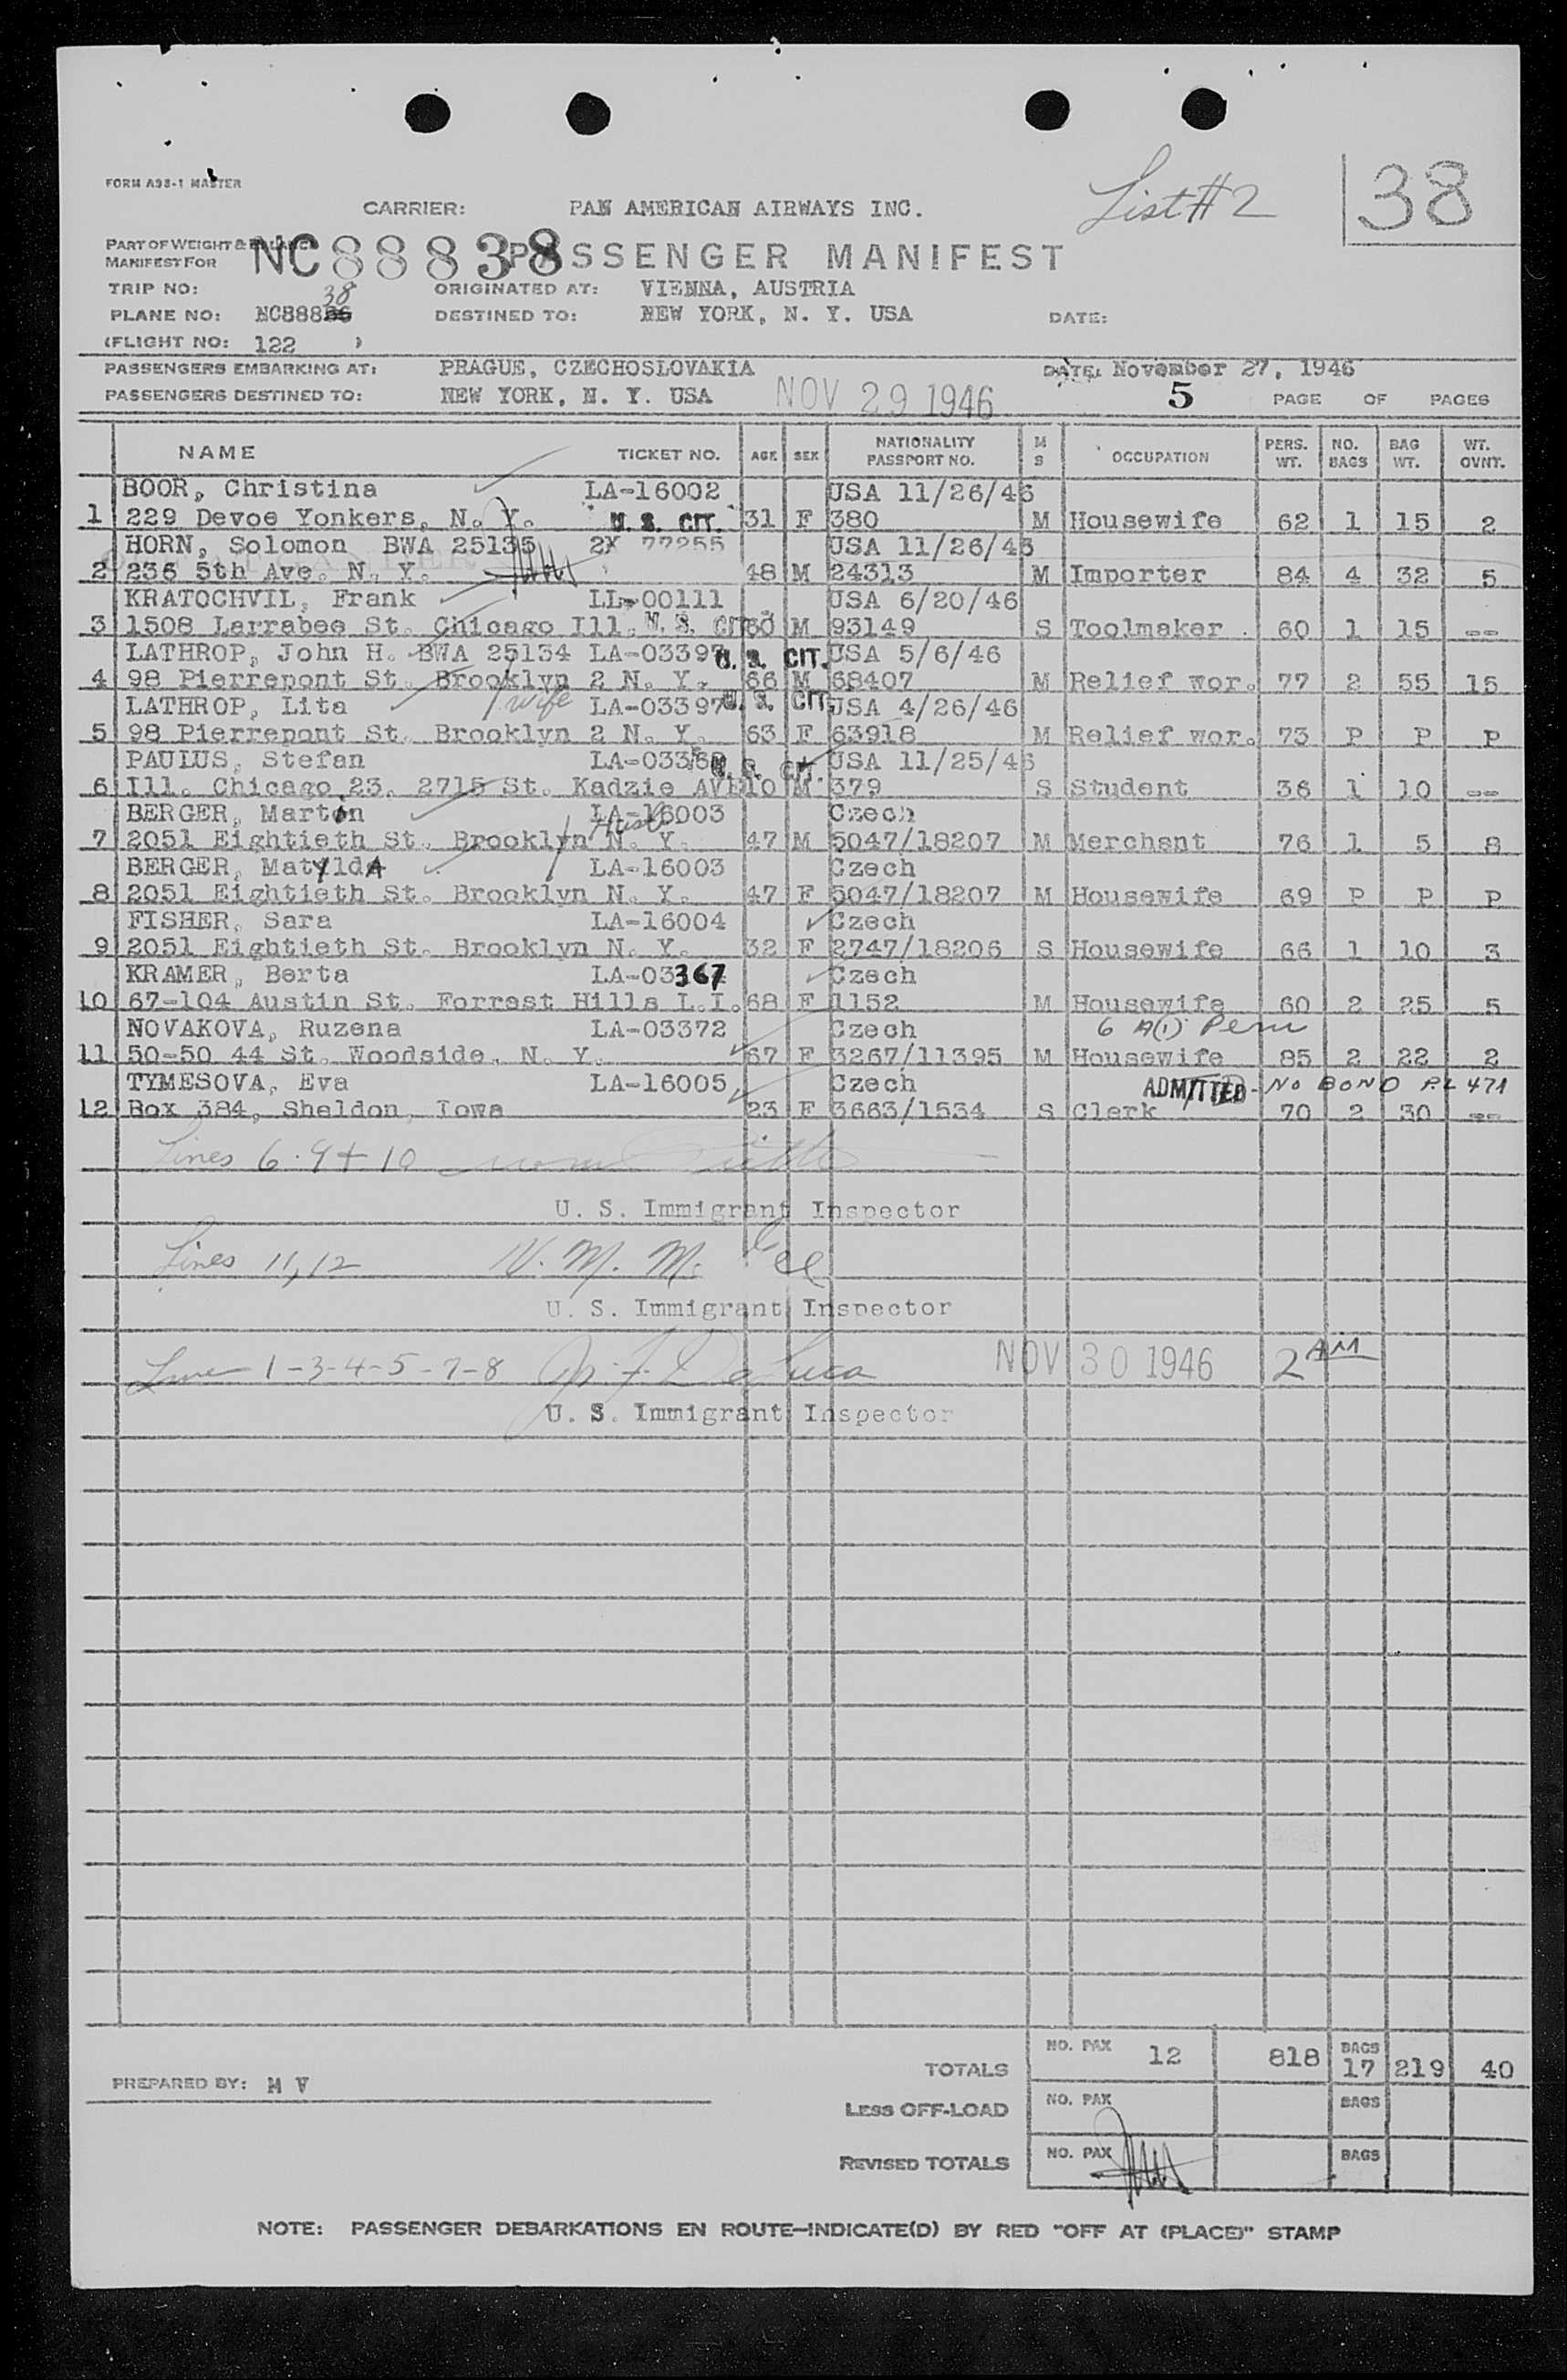 List #2 38
FORM A98-1 MASTER
CARRIER: PAN AMERICAN AIRWAYS INC.
PART OF WEIGHT & BALANCE
MANIFEST FOR NC88838 PASSENGER MANIFEST
TRIP NO: ORIGINATED AT: VIENNA, AUSTRIA
38
PLANE NO: NC888 DESTINED TO: NEW YORK, N. Y. USA DATE:
(FLIGHT NO: 122 )
PASSENGERS EMBARKING AT: PRAGUE, CZECHOSLOVAKIA DATE: November 27, 1946
PASSENGERS DESTINED TO: NEW YORK, N. Y. USA NOV 29 1946 5 PAGE OF PAGES
NAME TICKET NO. AGE SEX NATIONALITY PASSPORT NO. M S OCCUPATION PERS. WT. NO. BAGS BAG WT. WT. OVNT.
BOOR, Christina LA-16002 USA 11/26/46
1 229 Devoe Yonkers, N. Y. U. S. CIT. 31 F 380 M Housewife 62 1 15 2
HORN, Solomon BWA 25135 2X 77255 USA 11/26/46
2 236 5th Ave. N. Y. 48 M 24313 M Importer 84 4 32 5
KRATOCHVIL, Frank LL-00111 USA 6/20/46
3 1508 Larrabee St. Chicago Ill. U. S. CIT 60 M 93149 S Toolmaker 60 1 15 --
LATHROP, John H. BWA 25134 LA-03397 U. S. CIT. USA 5/6/46
4 98 Pierrepont St. Brooklyn 2 N. Y. 66 M 68407 M Relief wor. 77 2 55 15
LATHROP, Lita wife LA-03397 U. S. CIT. USA 4/26/46
5 98 Pierrepont St. Brooklyn 2 N. Y. 63 F 63918 M Relief wor. 73 P P P
PAULUS, Stefan LA-03368 U. S. CIT. USA 11/25/46
6 Ill. Chicago 23. 2715 St. Kadzie AVE 10 M 379 S Student 36 1 10 --
BERGER, Marton LA-16003 Czech
7 2051 Eightieth St. Brooklyn N. Y. Husb 47 M 5047/18207 M Merchant 76 1 5 8
BERGER, MatyldA LA-16003 Czech
8 2051 Eightieth St. Brooklyn N. Y. 47 F 5047/18207 M Housewife 69 P P P
FISHER, Sara LA-16004 Czech
9 2051 Eightieth St. Brooklyn N. Y. 32 F 2747/18206 S Housewife 66 1 10 3
KRAMER, Berta LA-03367 Czech
10 67-104 Austin St. Forrest Hills L.I. 68 F 1152 M Housewife 60 2 25 5
NOVAKOVA, Ruzena LA-03372 Czech 6 A(1) Perm
11 50-50 44 St. Woodside, N. Y. 67 F 3267/11395 M Housewife 85 2 22 2
TYMESOVA, Eva LA-16005 Czech ADMITTED - NO BOND P.L 471
12 Box 384, Sheldon, Iowa 23 F 3663/1534 S Clerk 70 2 30 --
Lines 6 . 9 + 10
U. S. Immigrant Inspector
Lines 11, 12
U. S. Immigrant Inspector
Line 1-3-4-5-7-8 NOV 30 1946 2 AM
U. S. Immigrant Inspector
TOTALS NO. PAX 12 818 BAGS 17 219 40
PREPARED BY: M V
LESS OFF-LOAD NO. PAX BAGS
REVISED TOTALS NO. PAX BAGS
NOTE: PASSENGER DEBARKATIONS EN ROUTE—INDICATE(D) BY RED "OFF AT (PLACE)" STAMP